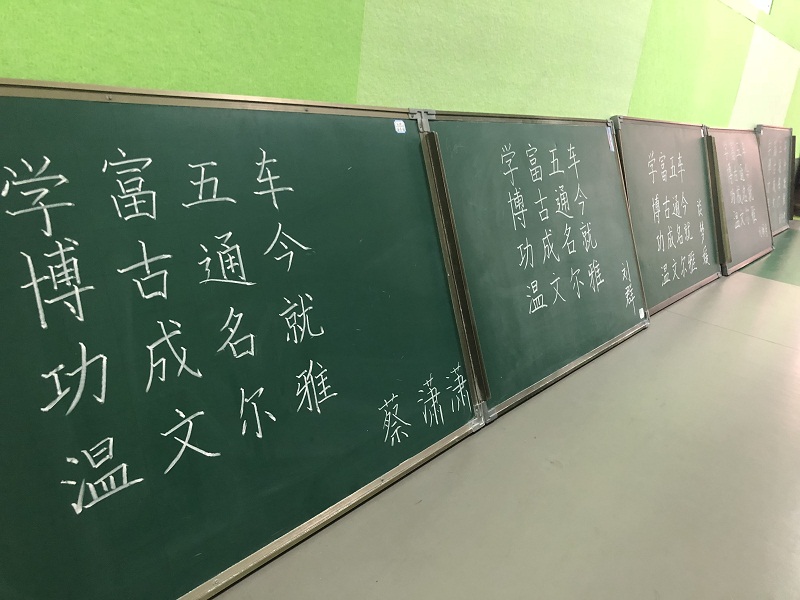 学富五车
博古通今
功成名就
温文尔雅
蔡潇潇
学富五车
博古通今
功成名就
温文尔雅
刘群
学富五车
博古通今
功成名就
温文尔雅
功成名就
温文尔雅